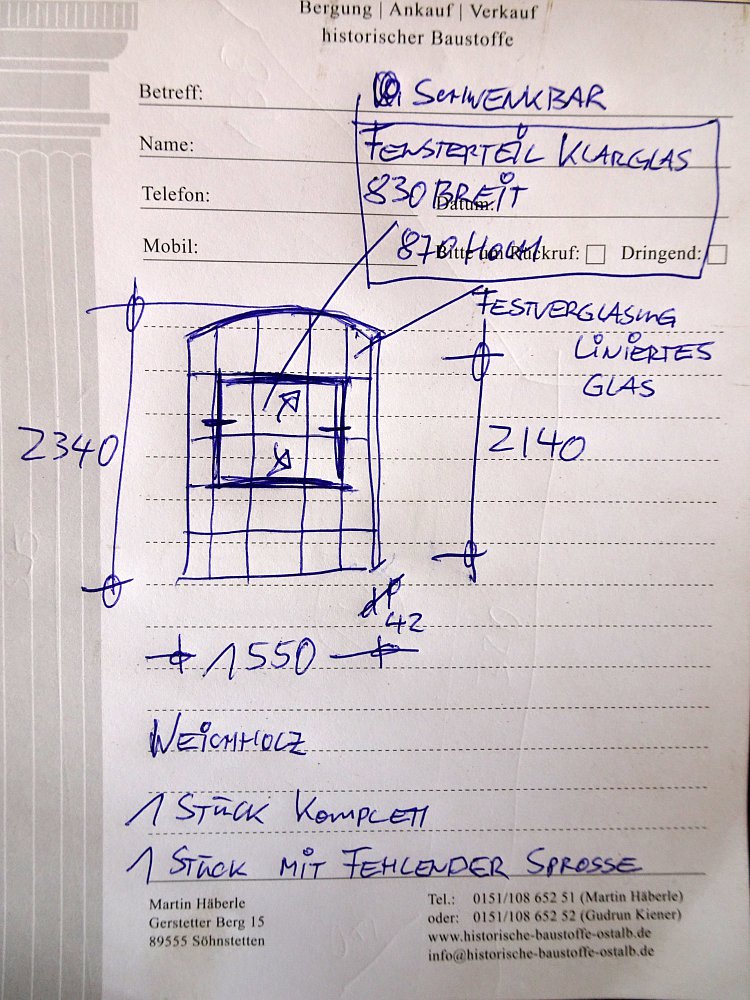 Bergung | Ankauf | Verkauf
historischer Baustoffe
Betreff:
SCHWENKBAR
Name:
FENSTERTEIL KLARGLAS
Telefon:
830 BREIT
Datum:
Mobil:
870 HOCH
Bitte um Rückruf:
Dringend:
FESTVERGLASUNG
LINIERTES
GLAS
2340
2140
42
1550
WEICHHOLZ
1 STÜCK KOMPLETT
1 STÜCK MIT FEHLENDER SPROSSE
Martin Häberle
Gerstetter Berg 15
89555 Söhnstetten
Tel.: 0151/108 652 51 (Martin Häberle)
oder: 0151/108 652 52 (Gudrun Kiener)
www.historische-baustoffe-ostalb.de
info@historische-baustoffe-ostalb.de